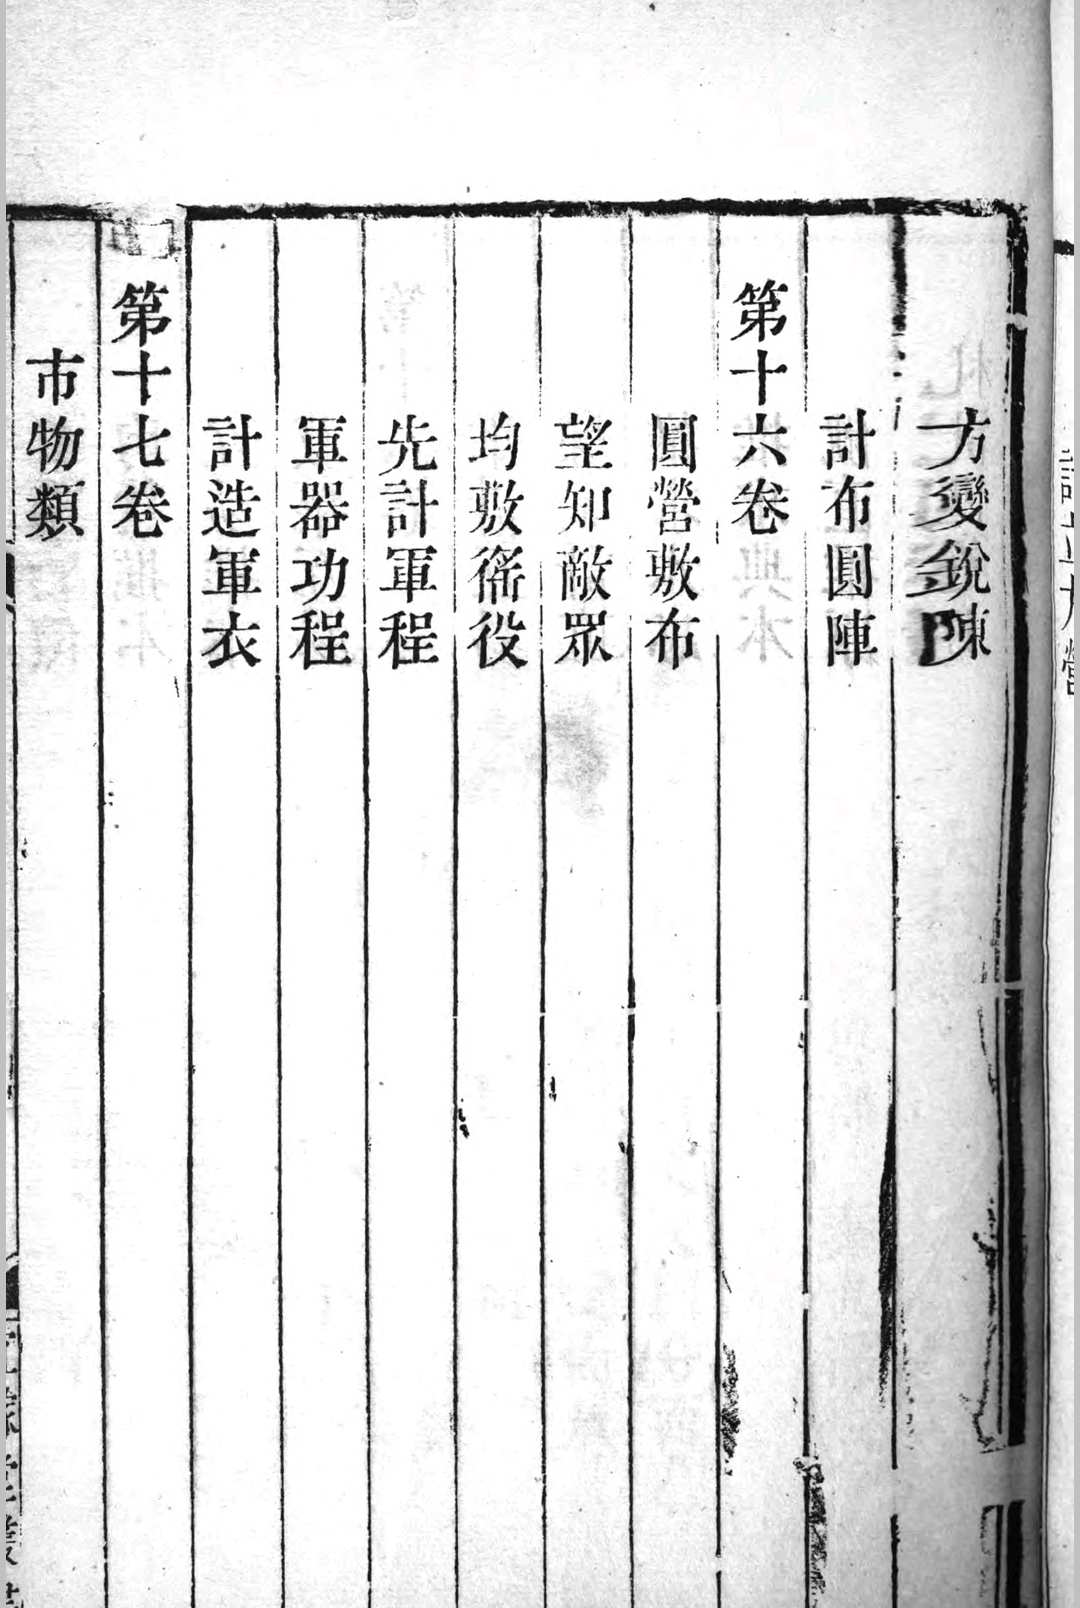 方變銳陳
計布圓陣
第十六卷
圓營敷布
望知敵眾
均敷徭役
先計軍程
軍器功程
計造軍衣
第十七卷
市物類